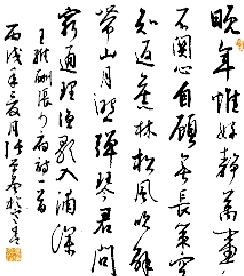 晚年惟好静萬事
不関心自顧無長策空
知返舊林松風吹解
帶山月照彈琴君問
窮通理漁歌入浦深
王維酬張少府詩一首
丙戌年夏月